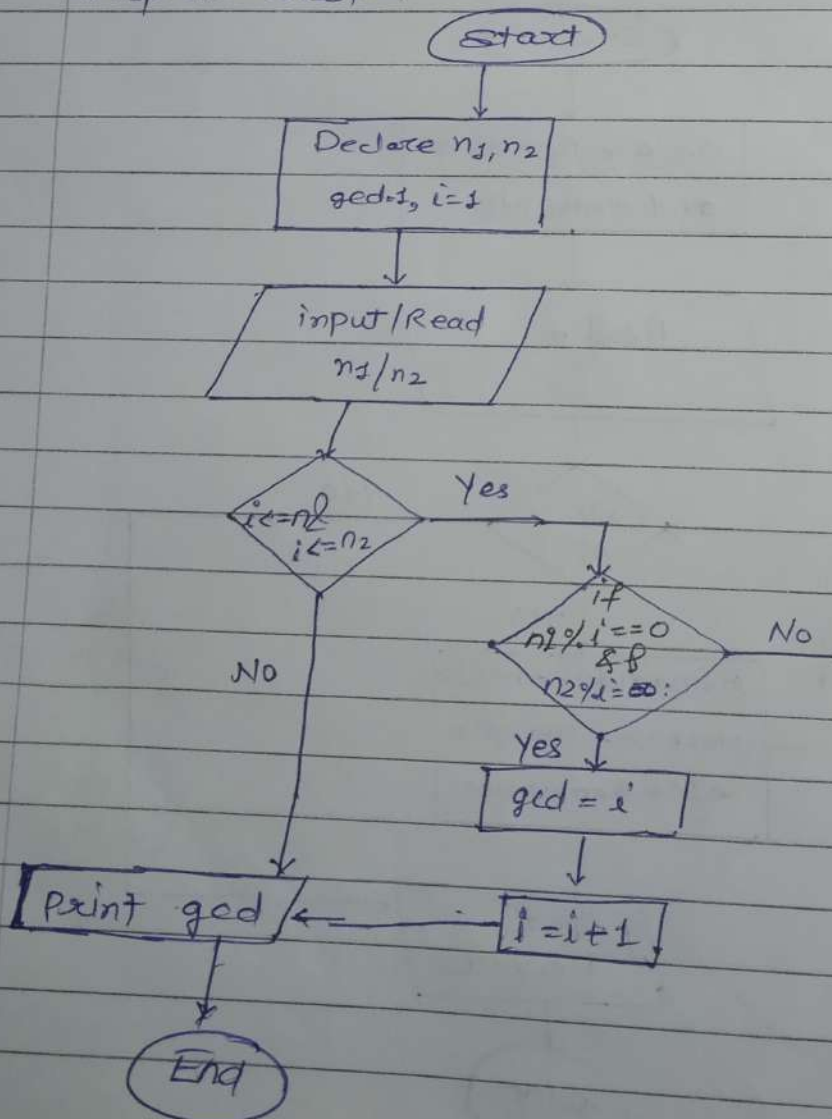 Start
Declare n1, n2
gcd=1, i=1
input/Read
n1/n2
Yes
i<=n1 &
i<=n2
if
n1%i==0
&&
n2%i==0:
No
No
Yes
gcd = i
i=i+1
Print gcd
End